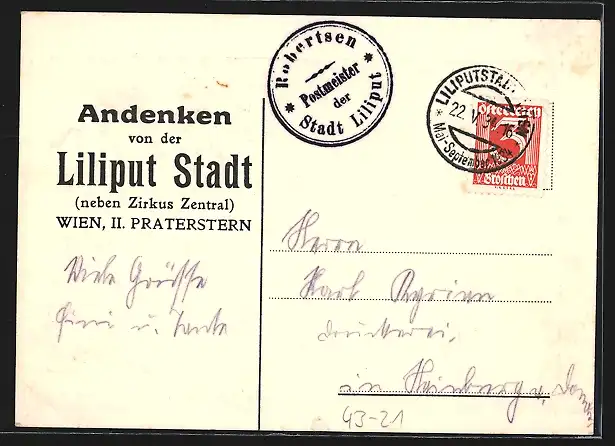 Andenken
von der
Liliput Stadt
(neben Zirkus Zentral)
WIEN, II. PRATERSTERN
Robertsen
Postmeister
der
Stadt Liliput
LILIPUTSTADT
22. VI. 34
Mai-September 1934
Österreich
5
Groschen
Viele Grüsse
u. Tante
Herrn
Karl
Druckerei,
in Hainberg a. Donau
43-21